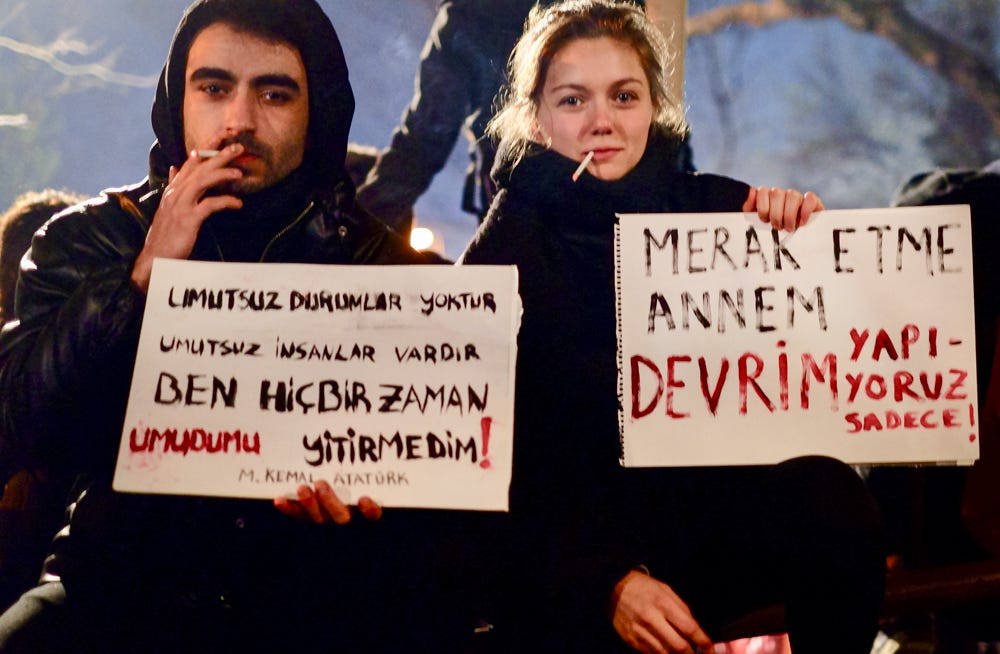 UMUTSUZ DURUMLAR YOKTUR
UMUTSUZ İNSANLAR VARDIR
BEN HİÇBİR ZAMAN
UMUDUMU YİTİRMEDİM!
M. KEMAL ATATÜRK
MERAK ETME
ANNEM
DEVRİM YAPI-
YORUZ
SADECE!